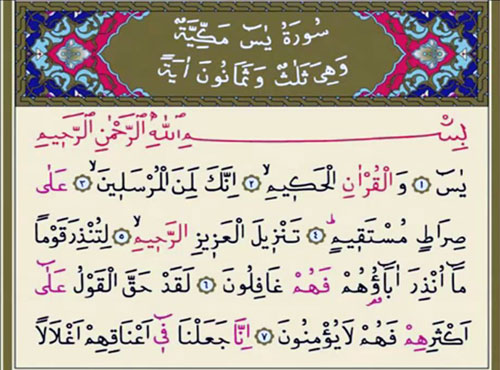 سُورَةُ يٰسٓ مَكِّيَّةٌ
وَهِىَ ثَلٰثٌ وَثَمَانُونَ اٰيَةً
بِسْــــمِ اللّٰهِ الرَّحْمٰنِ الرَّحٖيمِ
يٰسٓ ﴿١﴾ وَالْقُرْاٰنِ الْحَكٖيمِۙ ﴿٢﴾ اِنَّكَ لَمِنَ الْمُرْسَلٖينَۙ ﴿٣﴾ عَلٰى
صِرَاطٍ مُسْتَقٖيمٍؕ ﴿٤﴾ تَنْزٖيلَ الْعَزٖيزِ الرَّحٖيمِۙ ﴿٥﴾ لِتُنْذِرَ قَوْمًا
مَٓا اُنْذِرَ اٰبَٓاؤُ۬هُمْ فَهُمْ غَافِلُونَ ﴿٦﴾ لَقَدْ حَقَّ الْقَوْلُ عَلٰٓى
اَكْثَرِهِمْ فَهُمْ لَا يُؤْمِنُونَ ﴿٧﴾ اِنَّا جَعَلْنَا فٖٓى اَعْنَاقِهِمْ اَغْلَالًا